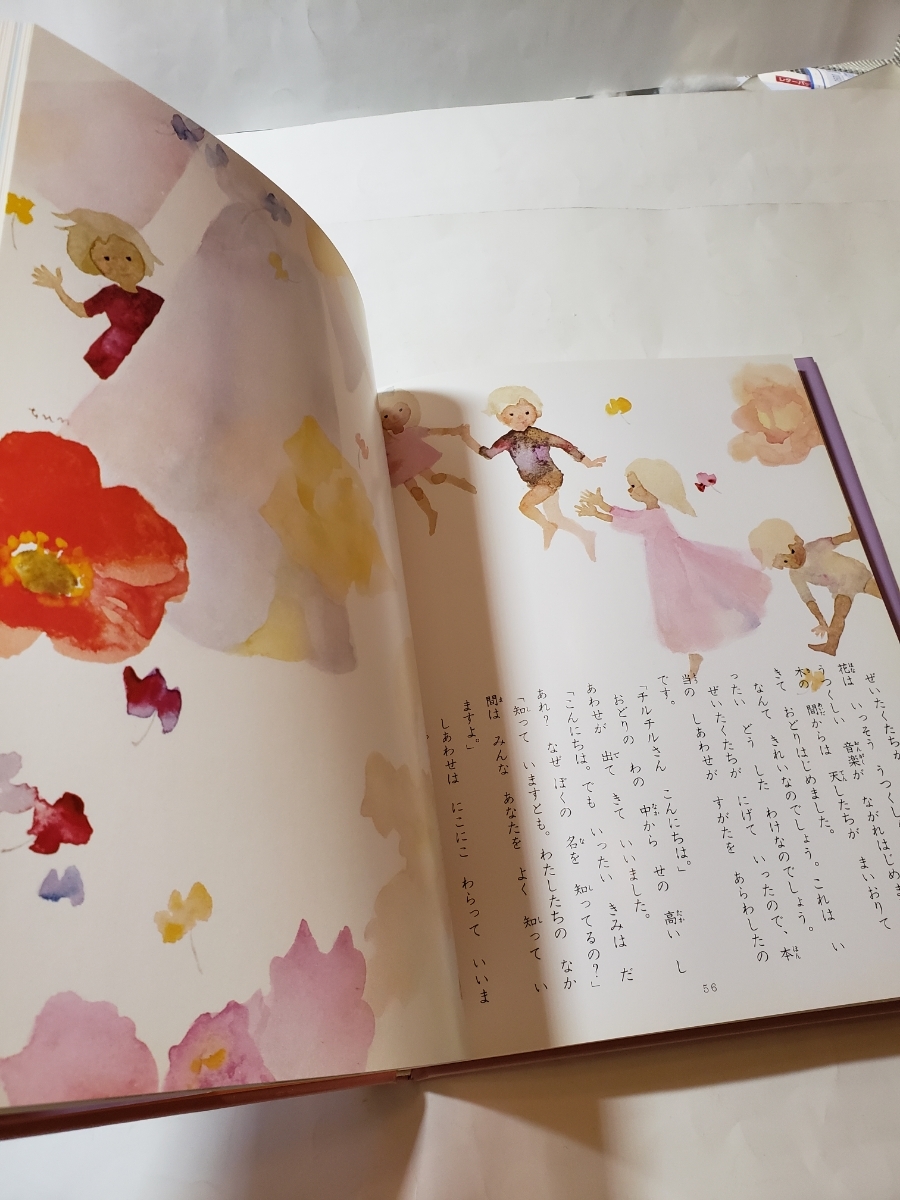 ちひろ
ぜいたくたちが
花は　いっそう　うつくし
うつくしい　音楽が　ながれはじめま
木の　間からは　天したちが　まいおりて
きて　おどりはじめました。
なんて　きれいなのでしょう。これは　い
ったい　どう　した　わけなのでしょう。
ぜいたくたちが　にげて　いったので、本
当の　しあわせが　すがたを　あらわしたの
です。
「チルチルさん　こんにちは。」
おどりの　わの　中から　せの　高い　し
あわせが　出て　きて　いいました。
「こんにちは。でも　いったい　きみは　だ
あれ？　なぜ　ぼくの　名を　知ってるの？」
「知って　いますとも。わたしたちの　なか
間は　みんな　あなたを　よく　知って　い
ますよ。」
しあわせは　にこにこ　わらって　いいま
56